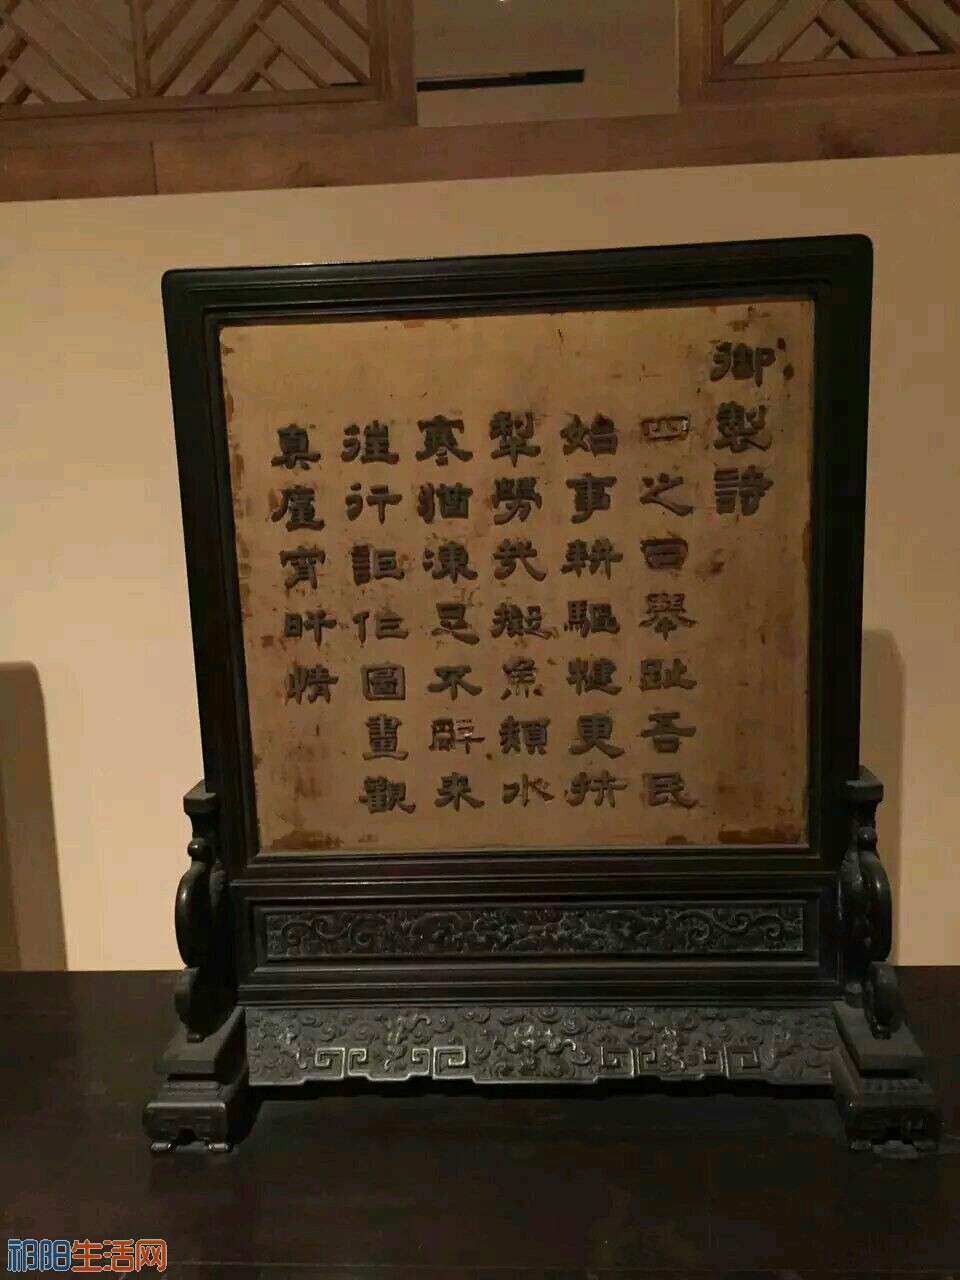 御製詩
四之日舉趾吾民
始事耕驅犍更扶
犁勞哉擬魚頳水
寒猶凍足不辭來
往行詎作圖畫觀
真廑宵旰情
祁阳生活网